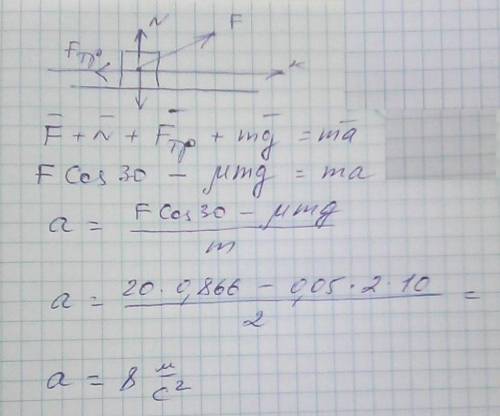 N F
Fтр x
F̄ + N̄ + F̄тр + mḡ = mā
F Cos 30 − μmg = ma
a = (F Cos 30 − μmg) / m
a = (20 · 0,866 − 0,05 · 2 · 10) / 2 =
a = 8 м/с²